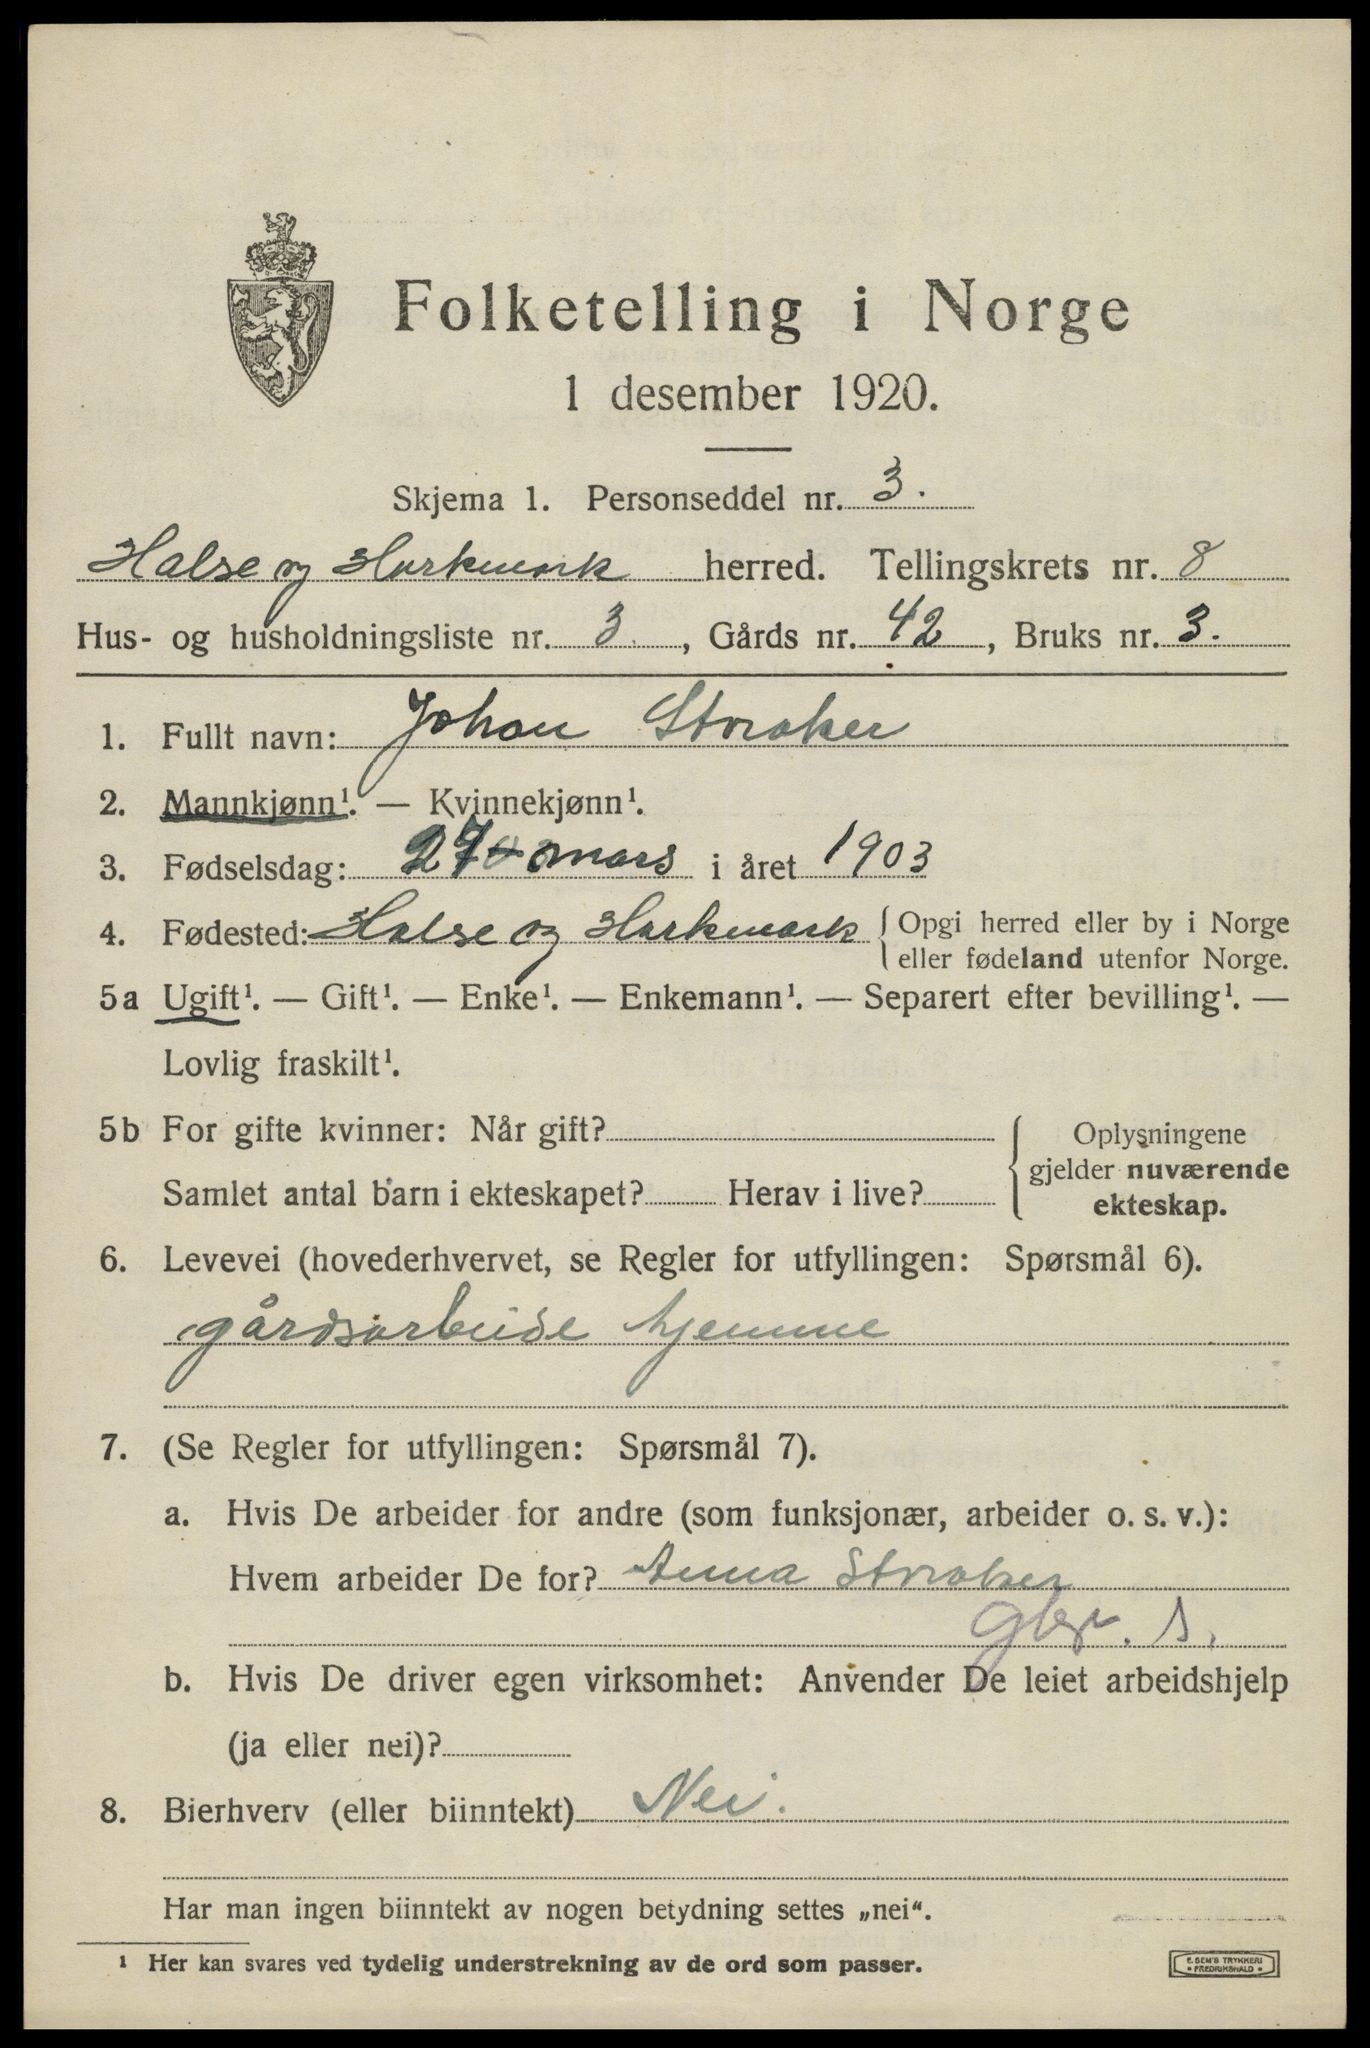 Folketelling i Norge
1 desember 1920.
Skjema 1. Personseddel nr. 3.
Halse og Harkmark herred. Tellingskrets nr. 8
Hus- og husholdningsliste nr. 3., Gårds nr. 42, Bruks nr. 3.
1. Fullt navn: Johan Straker
2. Mannkjønn¹. — Kvinnekjønn¹.
3. Fødselsdag: 27 mars i året 1903
4. Fødested: Halse og Harkmark { Opgi herred eller by i Norge
eller fødeland utenfor Norge.
5a Ugift¹. — Gift¹. — Enke¹. — Enkemann¹. — Separert efter bevilling¹. —
Lovlig fraskilt¹.
5b For gifte kvinner: Når gift?
Samlet antal barn i ekteskapet? Herav i live?
Oplysningene
gjelder nuværende
ekteskap.
6. Levevei (hovederhvervet, se Regler for utfyllingen: Spørsmål 6).
gårdsarbeide hjemme
7. (Se Regler for utfyllingen: Spørsmål 7).
a. Hvis De arbeider for andre (som funksjonær, arbeider o. s. v.):
Hvem arbeider De for? Anna Straker
gbr. s.
b. Hvis De driver egen virksomhet: Anvender De leiet arbeidshjelp
(ja eller nei)?
8. Bierhverv (eller biinntekt) Nei.
Har man ingen biinntekt av nogen betydning settes „nei“.
¹ Her kan svares ved tydelig understrekning av de ord som passer.
E. SEM'S TRYKKERI
• FREDRIKSHALD •